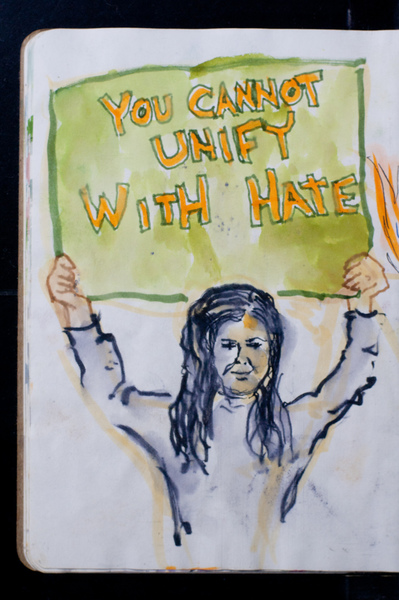 YOU CANNOT
UNIFY
WITH HATE